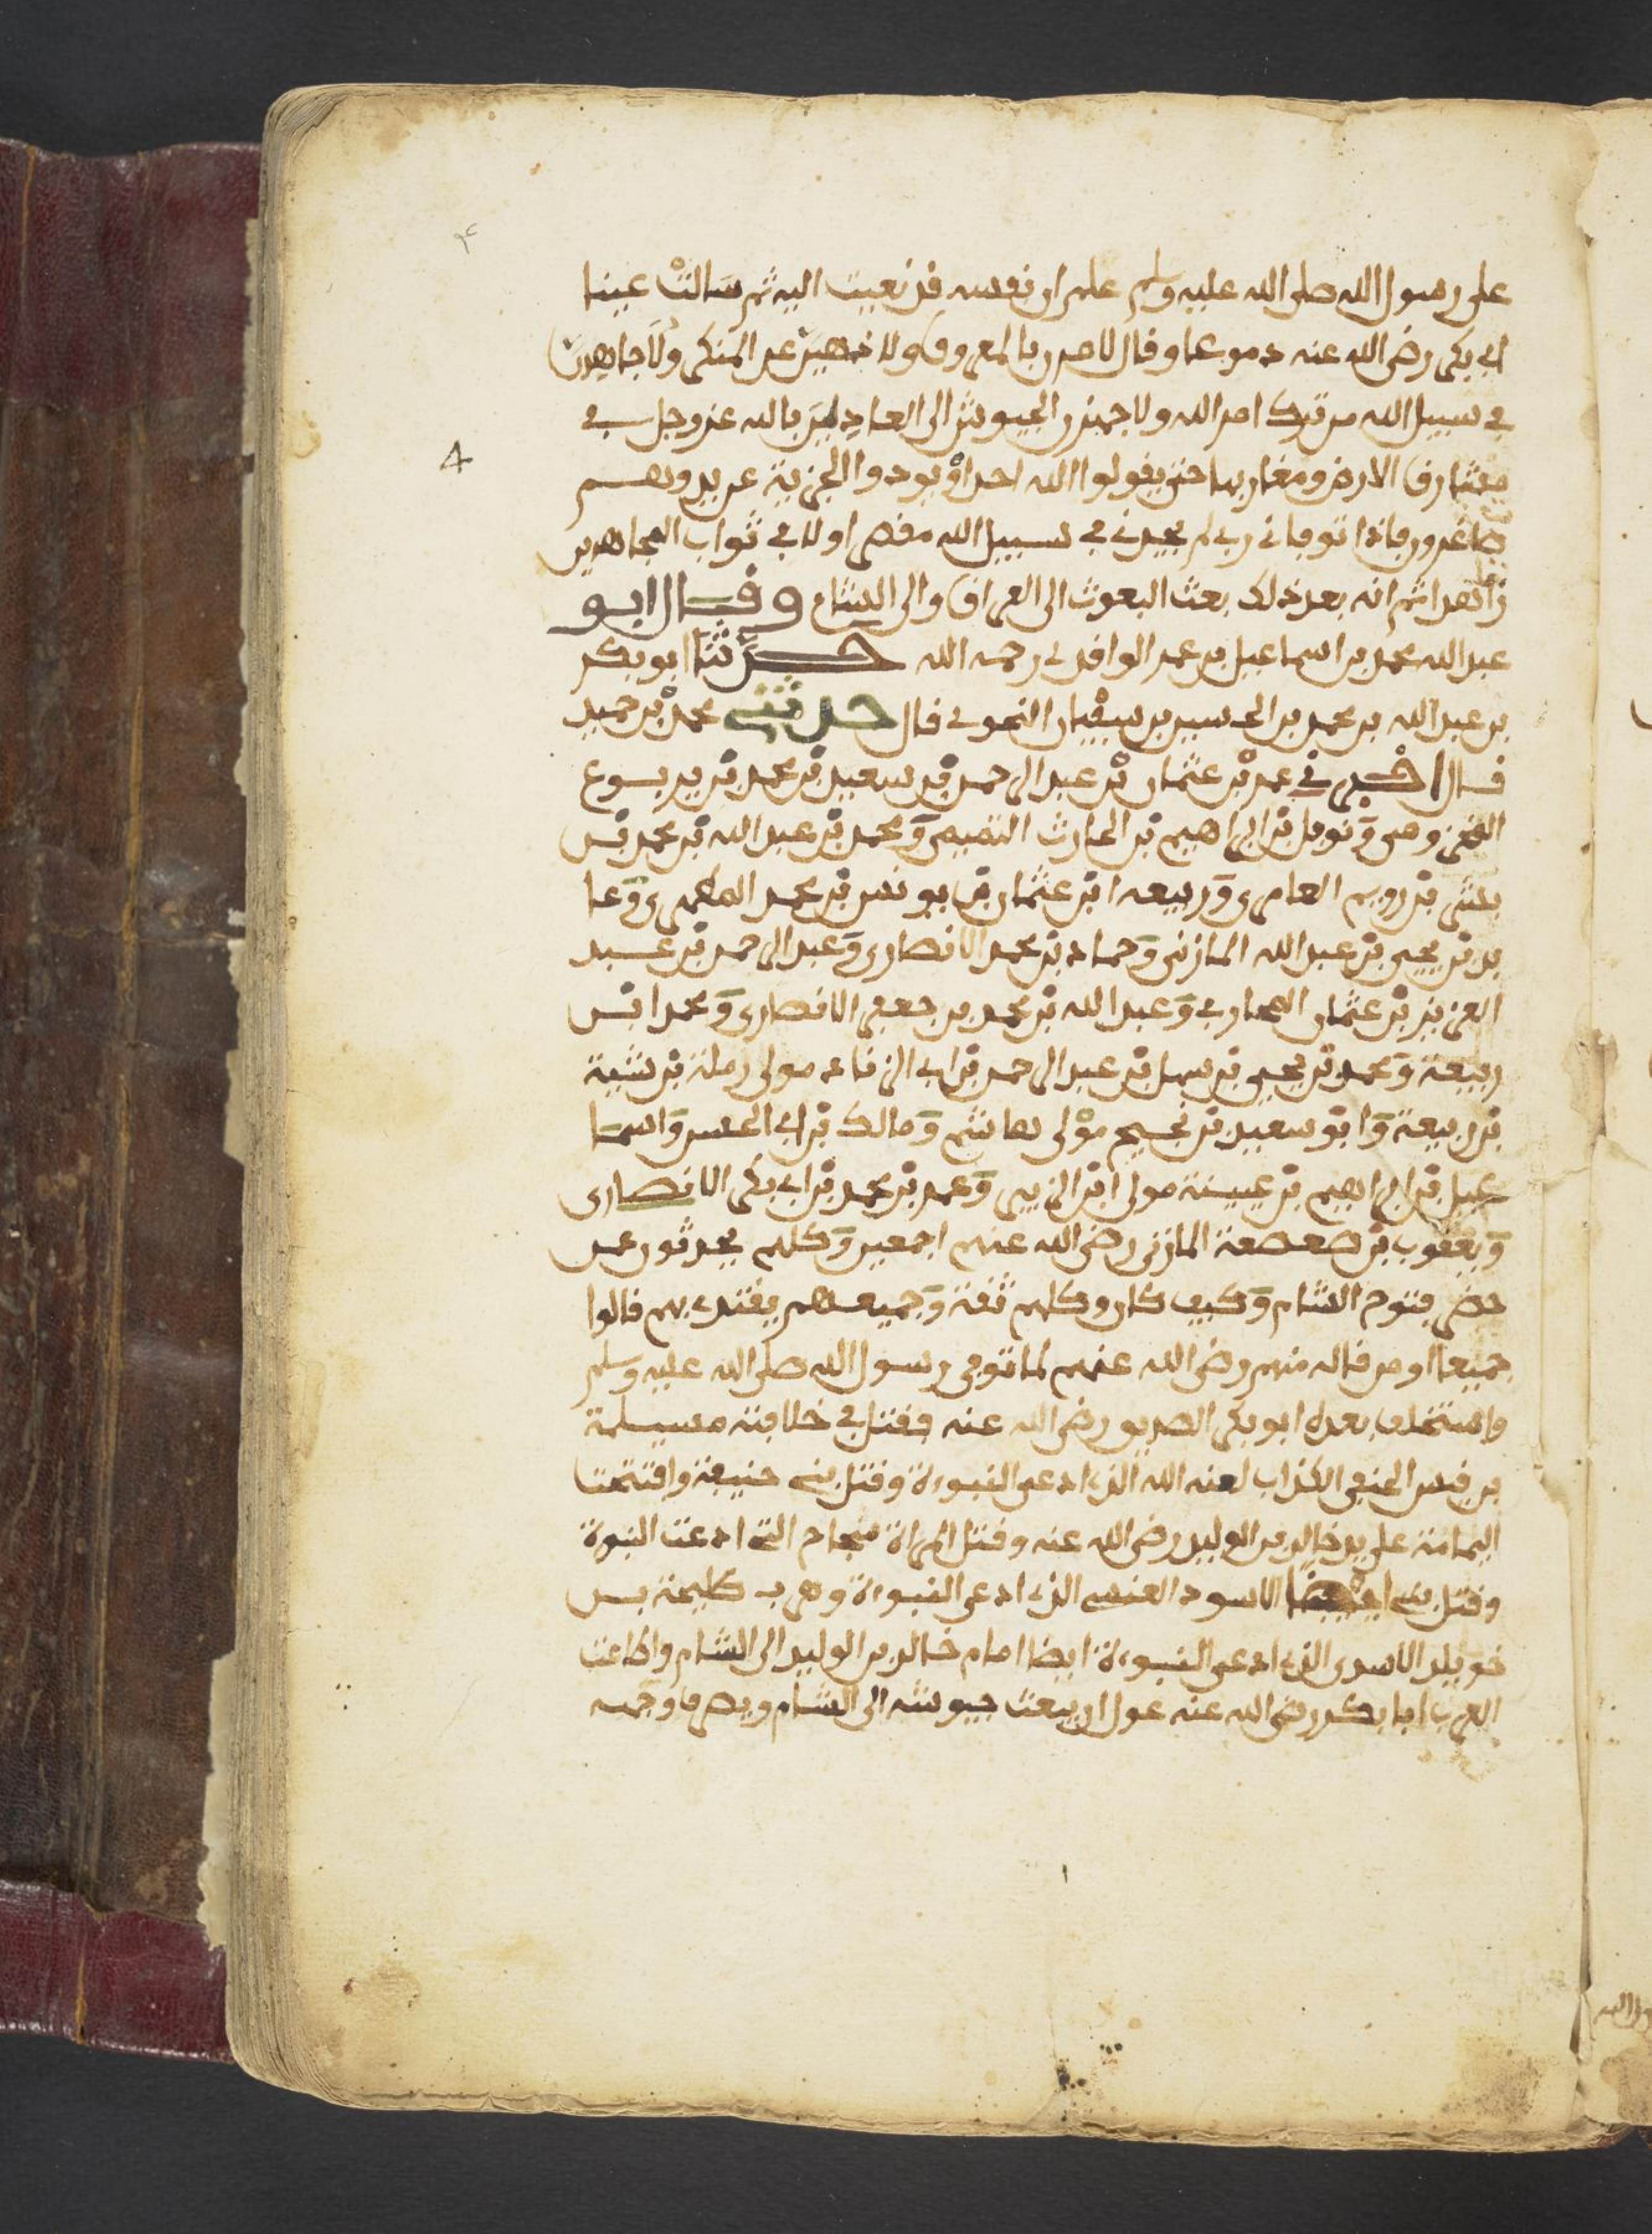 على رسول الله صلى الله عليه وسلم علم ان نفسه قد نعيت اليه ثم سَالتْ عينا
ابي بكر رضي الله عنه دموعا وقال لامرن بالمعروف ولا نهيَن عن المنكر ولأجاهدنّ
في سبيل الله من ترك امر الله ولاجهزن الجيوش الى العادلين بالله عز وجل في
مشارق الارض ومغاربها حتى يقولوا الله احد اوْ يودوا الجزية عن يد وهم
صاغرون فاذا توفاني ربي لم يجدني في سبيل الله مقصرا ولا في ثواب المجاهدين
زاهدا ثم انه بعد ذلك بعث البعوث الى العراق والى الشام وقال ابو
عبد الله محمد بن اسماعيل بن عمر الواقدي رحمه الله حدَّثنا ابو بكر
بن عبد الله بن محمد بن الحسين بن سفيان النحوي قال حدثني محمد بْن حميد
قال اخبرني عمر بْن عثمان بْن عبد الرحمن بْن سعيد بْن محمد بْن يربوع
المخزومي وَنوفل بْن ابراهيم بْن الحارث التميمي وَمحمد بْن عبد الله بْن محمد بْن
بْن رويم العامري وَربيعه ابْن عثمان بْن يونس بْن محمد وَعا
يد بْن يحيى بْن عبد الله المازني وَحماد بْن محمد الانصاري وَعبد الرحمن بْن عبد
العزيز بْن عثمان المحاربي وَعبد الله بْن محمد بن جعفر الانصاري وَمحمد ابْن
ربيعة وَمحمد بْن يحيى بْن سهل بْن عبد الرحمن بْن ابي الزناد مولى رملة بْن شيبة
بْن ربيعة وَابوْ سعيد بْن نجيح موْلى هاشم وَمالك بْن ابي الحسن وَاسما
عيل بْن ابراهيم بْن عيينة مولى ابْن الزبير وَعمر بْن محمد بْن ابي بكر الانصارى
وَيعقوب بْن صعصعة المازني رضي الله عنهم اجمعين وَكلهم يحدثون عمن
حضر فتوح الشام وَكيف كان وكلهم ثقة وَجميعهم يقتدى بهم قالوا
جميعا او من قاله منهم رضي الله عنهم لما توفي رسول الله صلى الله عليه وسلم
واستخلف بعده ابو بكر الصديق رضي الله عنه فقتل في خلافته مسيلمة
بن قيس الحنفي الكذاب لعنه الله الذي ادعى النبوءة وقتل بني حنيفة وافتتحت
اليمامة على يد خالد بن الوليد رضي الله عنه وقتل المراة سجاح التي ادعت النبوة
وقتل ايضا الاسود العنسي الذي ادعى النبوءة وهرب طليحة بن
خويلد الاسدي الذي ادعى النبوءة ايضا امام خالد بن الوليد الى الشام واطاعت
العرب ابا بكر رضي الله عنه عول ان يبعث جيوشه الى الشام ويصرف وجهه
4